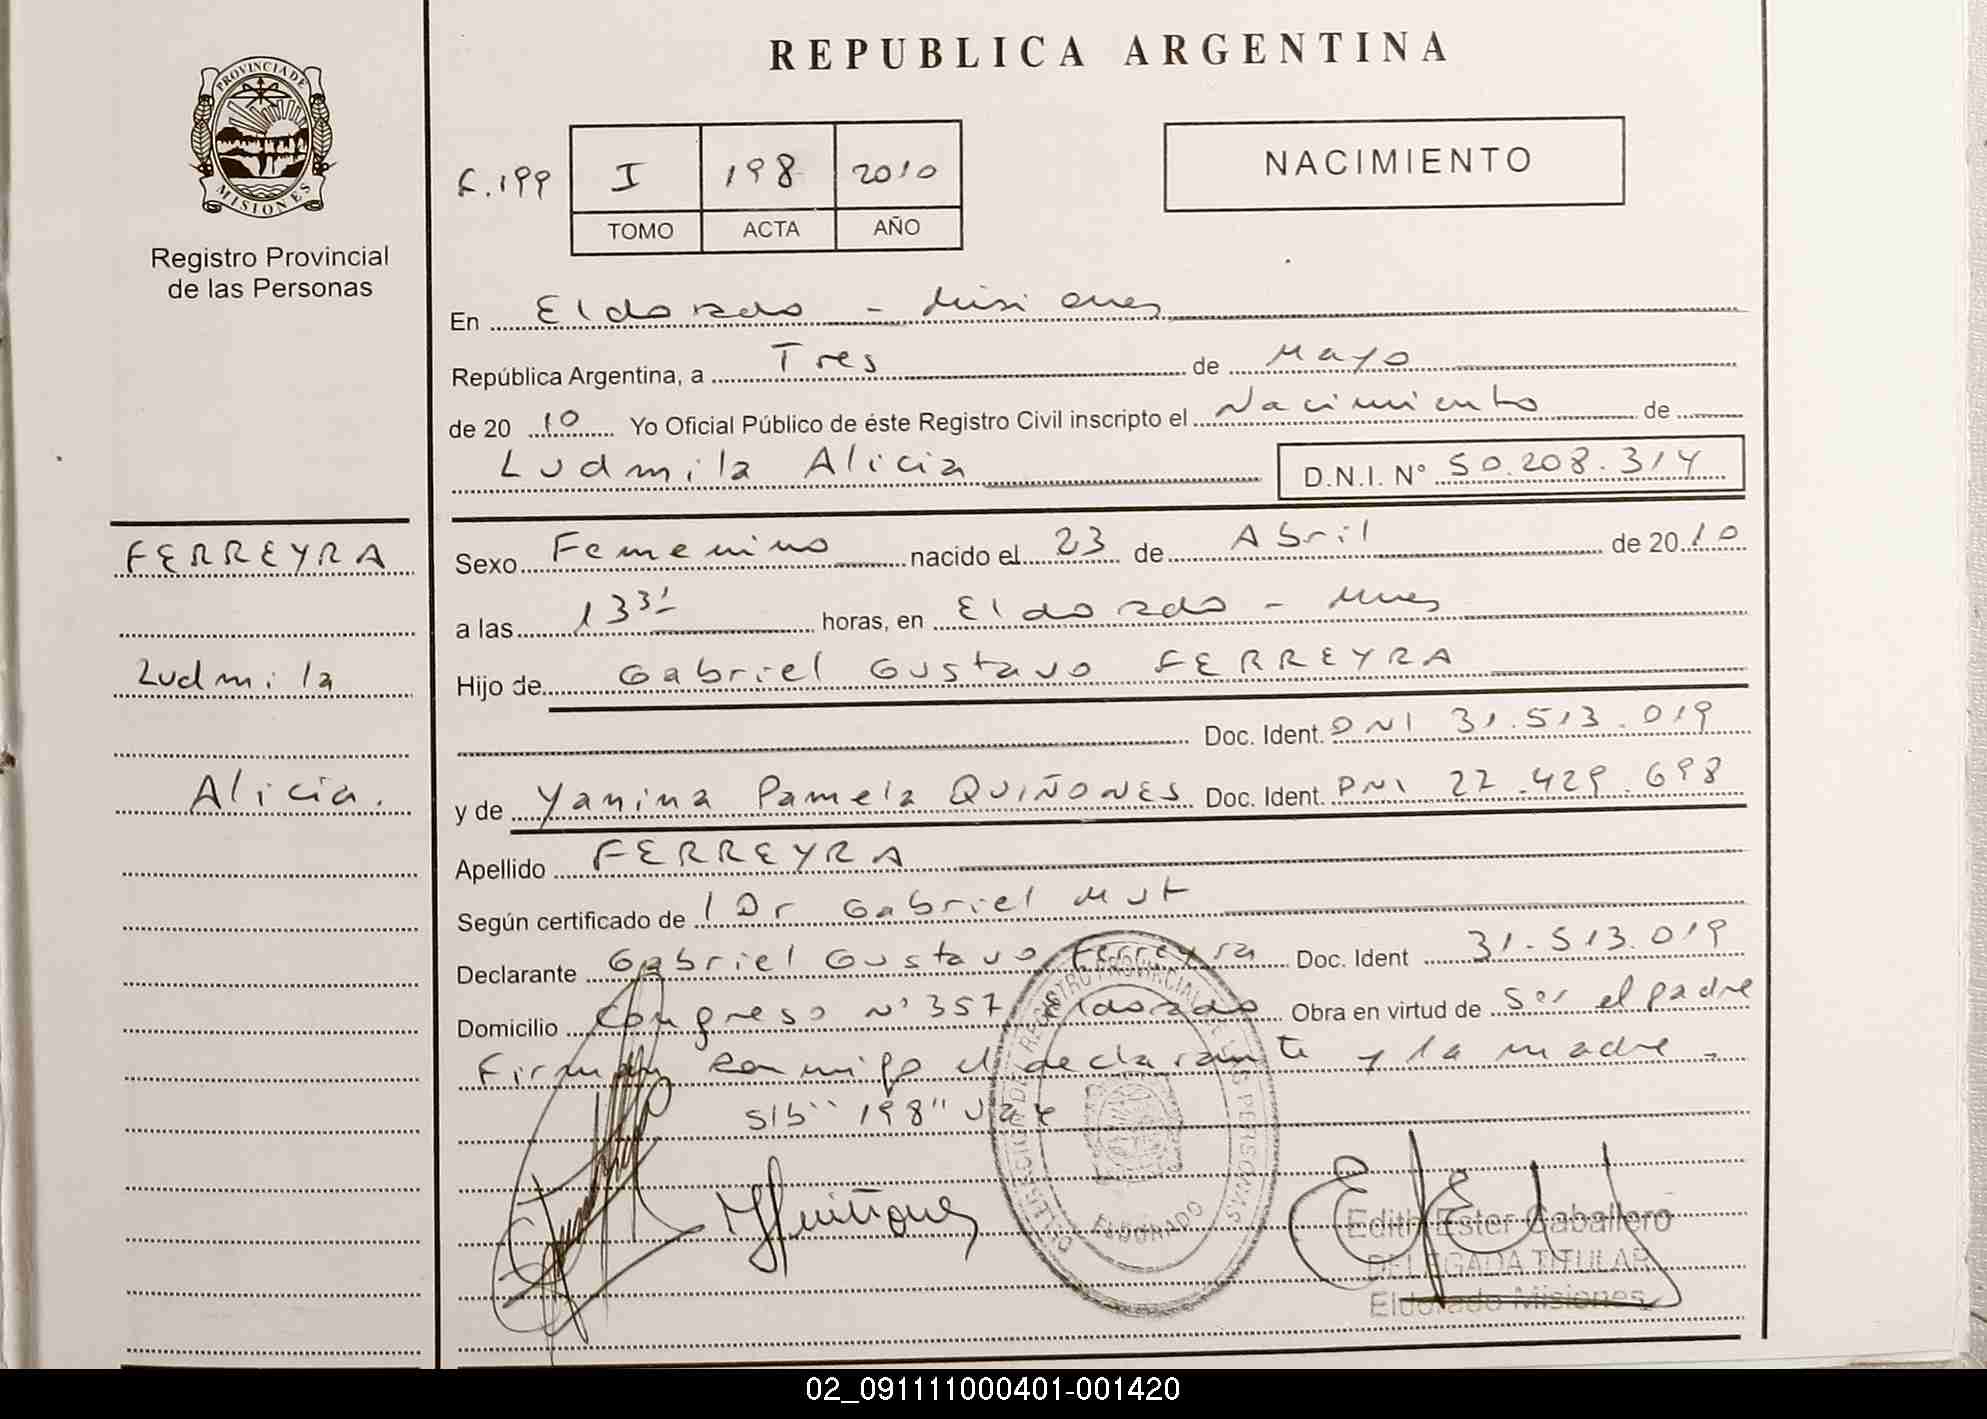 REPUBLICA ARGENTINA
PROVINCIA DE
MISIONES
Registro Provincial
de las Personas
F.199 I 198 2010
TOMO ACTA AÑO
NACIMIENTO
En Eldorado - Misiones
República Argentina, a Tres de Mayo
de 20 10 Yo Oficial Público de éste Registro Civil inscripto el Nacimiento de
Ludmila Alicia D.N.I. N° 50.208.314
FERREYRA
Ludmila
Alicia.
Sexo Femenino nacido el 23 de Abril de 20 10
a las 13 31 horas, en Eldorado - Mnes
Hijo de Gabriel Gustavo FERREYRA
Doc. Ident. DNI 31.513.019
y de Yanina Pamela QUIÑONES Doc. Ident. DNI 27.429.698
Apellido FERREYRA
Según certificado de l Dr Gabriel Mut
Declarante Gabriel Gustavo Ferreyra Doc. Ident 31.513.019
Domicilio Congreso N° 357 Eldorado Obra en virtud de Ser el padre
Firman conmigo el declarante y la madre -
S/b "198" Vale
YQuiñones
DELEGACION DEL REGISTRO PROVINCIAL DE LAS PERSONAS
ELDORADO
Edith Ester Caballero
DELEGADA TITULAR
Eldorado Misiones
02_091111000401-001420